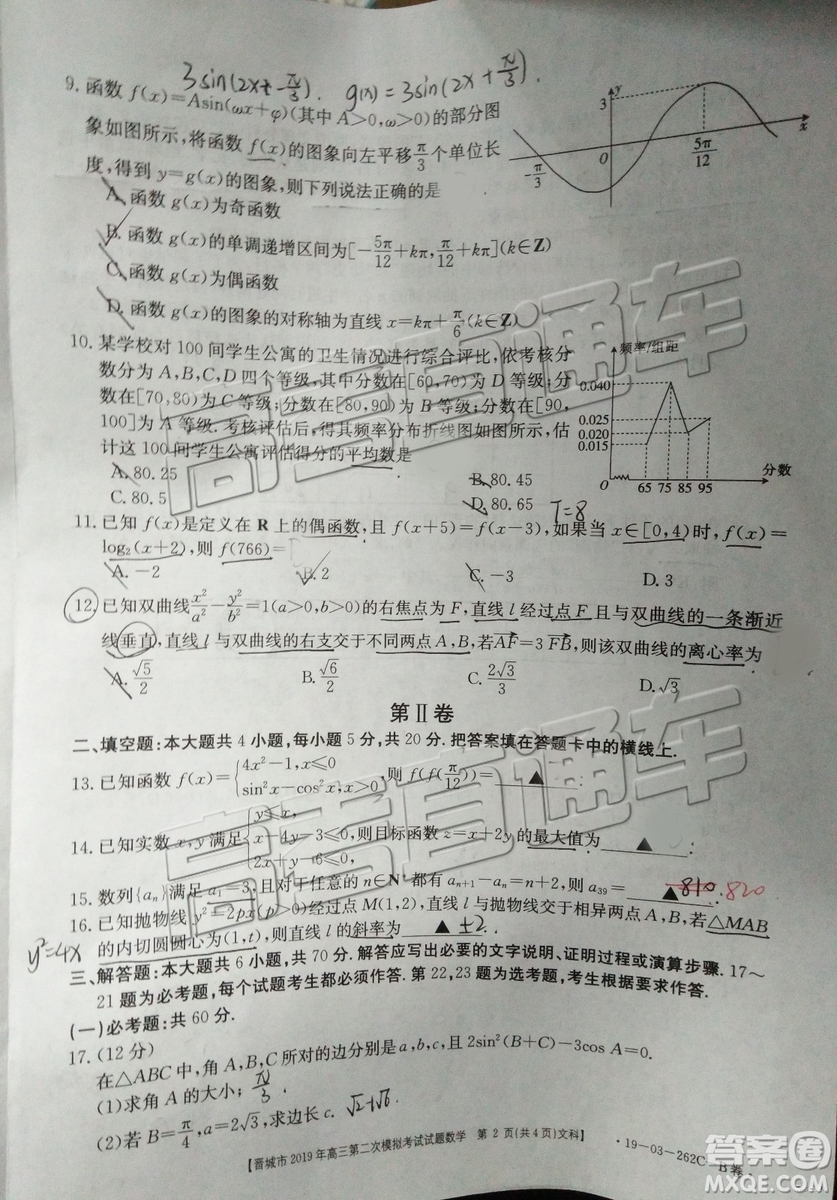 3sin(2x+-π/3). g(x)=3sin(2x+π/3).
9. 函数 f(x)=Asin(ωx+φ)(其中 A>0,ω>0)的部分图
象如图所示,将函数 f(x)的图象向左平移π/3个单位长
度,得到 y=g(x)的图象,则下列说法正确的是
A. 函数 g(x)为奇函数
B. 函数 g(x)的单调递增区间为[-5π/12+kπ,π/12+kπ](k∈Z)
C. 函数 g(x)为偶函数
D. 函数 g(x)的图象的对称轴为直线 x=kπ+π/6(k∈Z)
y
3
-π/3
O
5π/12
x
10. 某学校对 100 间学生公寓的卫生情况进行综合评比,依考核分
数分为 A,B,C,D 四个等级,其中分数在[60,70)为 D 等级;分
数在[70,80)为 C 等级;分数在[80,90)为 B 等级;分数在[90,
100]为 A 等级.考核评估后,得其频率分布折线图如图所示,估
计这 100 间学生公寓评估得分的平均数是
A. 80.25
B. 80.45
C. 80.5
D. 80.65
频率/组距
0.040
0.025
0.020
0.015
O 65 75 85 95
分数
T=8
11. 已知 f(x)是定义在 R 上的偶函数,且 f(x+5)=f(x-3),如果当 x∈[0,4)时,f(x)=
log₂(x+2),则 f(766)=
A. -2
B. 2
C. -3
D. 3
12. 已知双曲线x²/a²-y²/b²=1(a>0,b>0)的右焦点为 F,直线 l 经过点 F 且与双曲线的一条渐近
线垂直,直线 l 与双曲线的右支交于不同两点 A,B,若AF=3 FB,则该双曲线的离心率为
A. √5/2
B. √6/2
C. 2√3/3
D. √3
第Ⅱ卷
二、填空题:本大题共 4 小题,每小题 5 分,共 20 分.把答案填在答题卡中的横线上.
13. 已知函数 f(x)={4x²-1,x≤0
sin²x-cos²x,x>0
,则 f(f(π/12))= ▲ .
14. 已知实数 x,y 满足{y≤x,
x-4y-3≤0,
2x+y-6≤0,
则目标函数 z=x+2y 的最大值为 ▲ .
15. 数列{aₙ}满足 a₁=3,且对于任意的 n∈N* 都有 aₙ₊₁-aₙ=n+2,则 a₃₉= ▲ . 810 820
16. 已知抛物线 y²=2px(p>0)经过点 M(1,2),直线 l 与抛物线交于相异两点 A,B,若△MAB
的内切圆圆心为(1,t),则直线 l 的斜率为 ▲ . ±2
y²=4x
三、解答题:本大题共 6 小题,共 70 分.解答应写出必要的文字说明、证明过程或演算步骤.17~
21 题为必考题,每个试题考生都必须作答.第 22,23 题为选考题,考生根据要求作答.
(一)必考题:共 60 分.
17. (12 分)
在△ABC 中,角 A,B,C 所对的边分别是 a,b,c,且 2sin²(B+C)-3cos A=0.
(1)求角 A 的大小; π/3
(2)若 B=π/4,a=2√3,求边长 c. √2+√6
【晋城市 2019 年高三第二次模拟考试试题数学 第 2 页(共 4 页)文科】
·19-03-262C·
B卷
高考直通车
高考直通车
答案圈
MXQE.COM